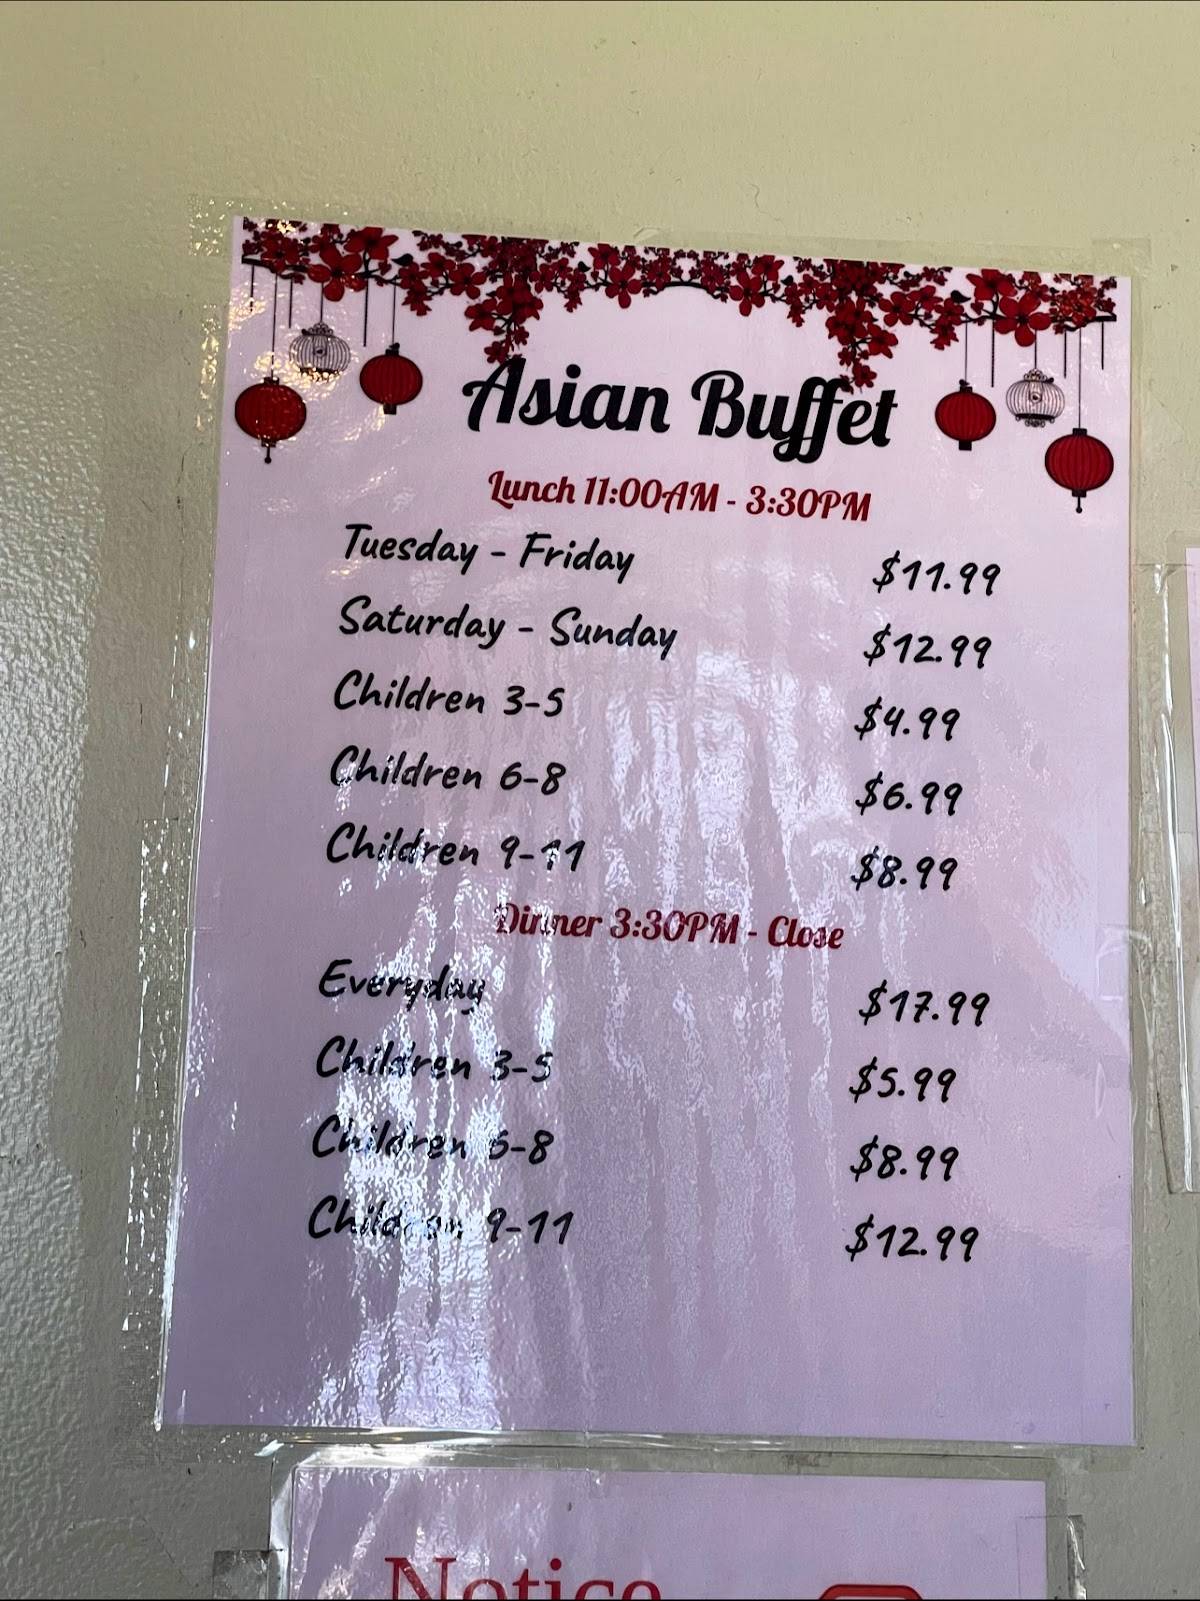 Asian Buffet
Lunch 11:00AM - 3:30PM
Tuesday - Friday $11.99
Saturday - Sunday $12.99
Children 3-5 $4.99
Children 6-8 $6.99
Children 9-11 $8.99
Dinner 3:30PM - Close
Everyday $17.99
Children 3-5 $5.99
Children 6-8 $8.99
Children 9-11 $12.99
Notice